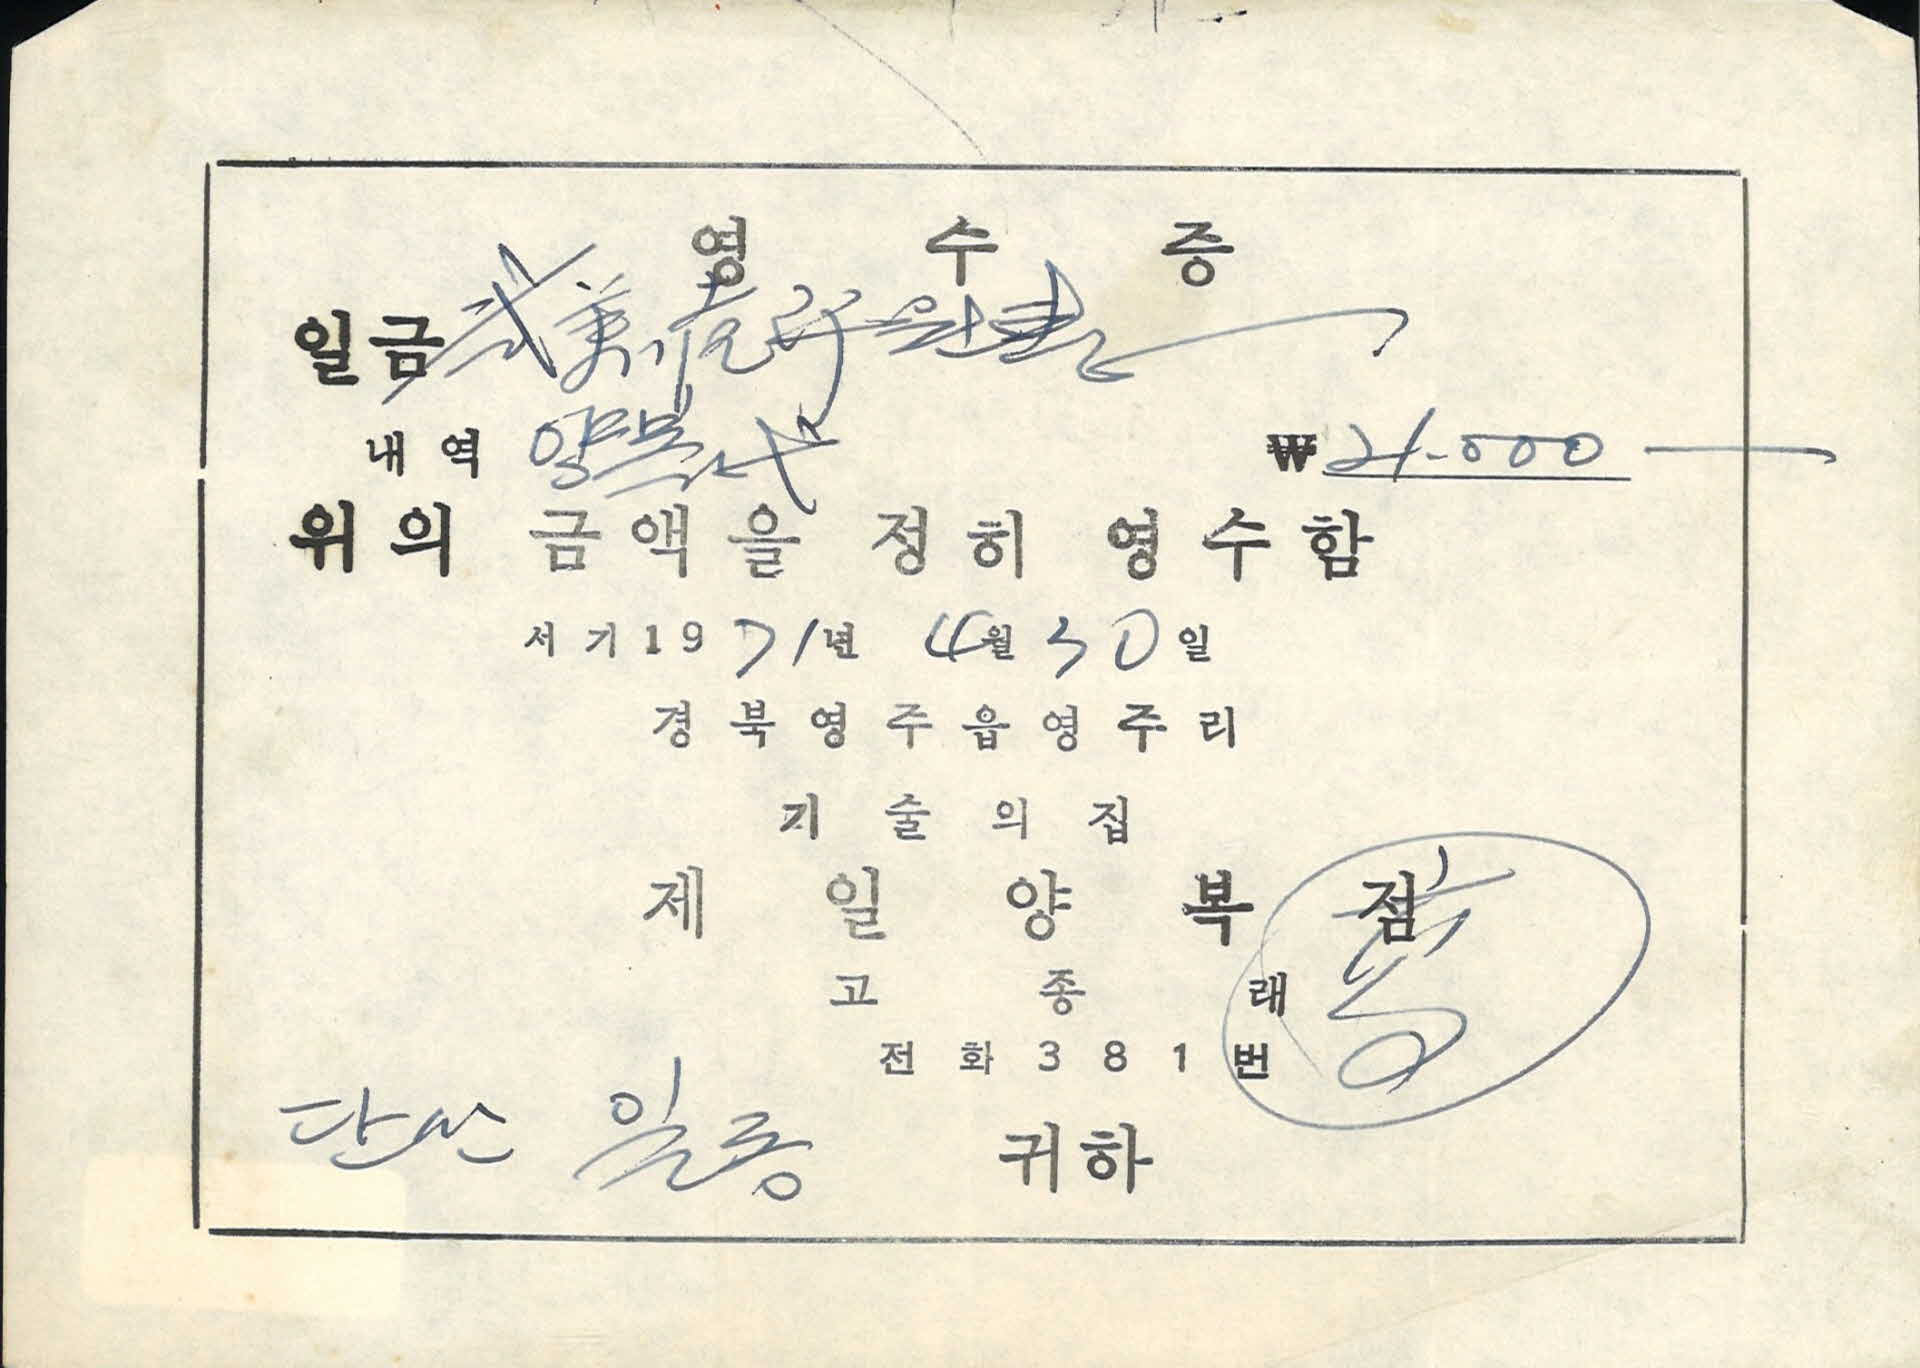 영 수 증
일금 貳萬壱仟원整
내역 양복代 ₩21.000
위의 금액을 정히 영수함
서기 1971년 4월 30일
경북영주읍영주리
기술의집
제일양복점
고종래
전화381번
단산 일중 귀하